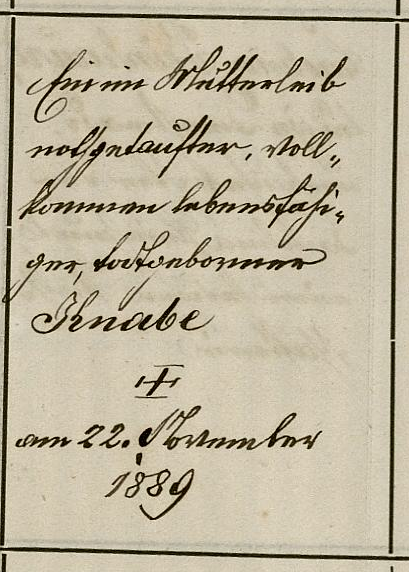 Ein im Mutterleib
nothgetaufter, voll-
kommen lebensfähi-
ger, todtgeborner
Knabe
+
am 22. November
1889